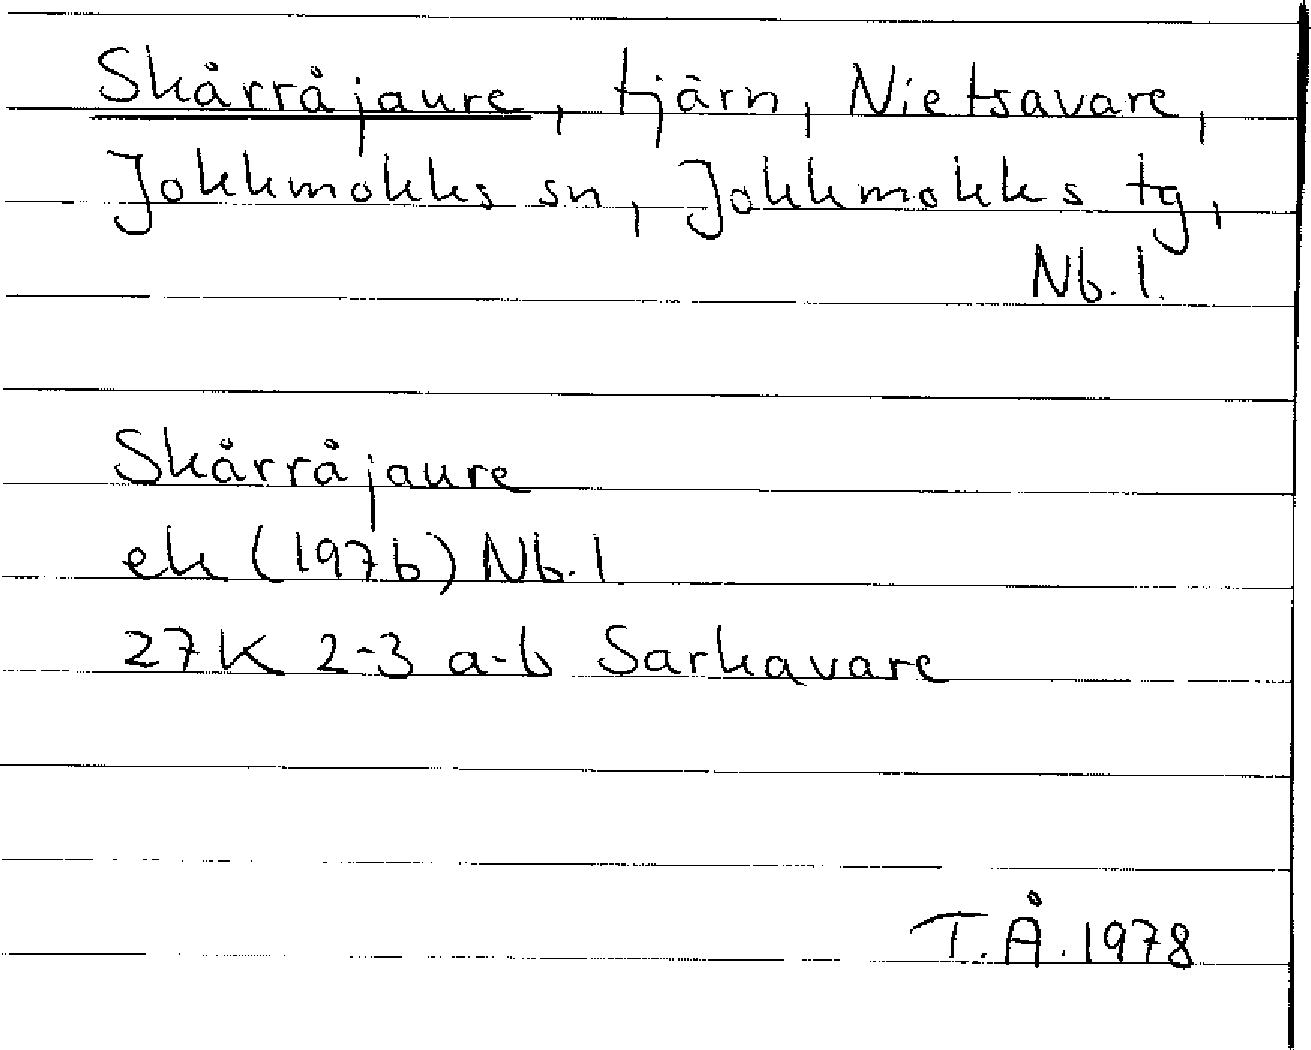 Skårråjaure, tjärn, Nietsavare,
Jokkmokks sn, Jokkmokks tg,
Nb. l.
Skårråjaure
ek (1976) Nb. l
27K 2-3 a-b Sarkavare
T.Å. 1978